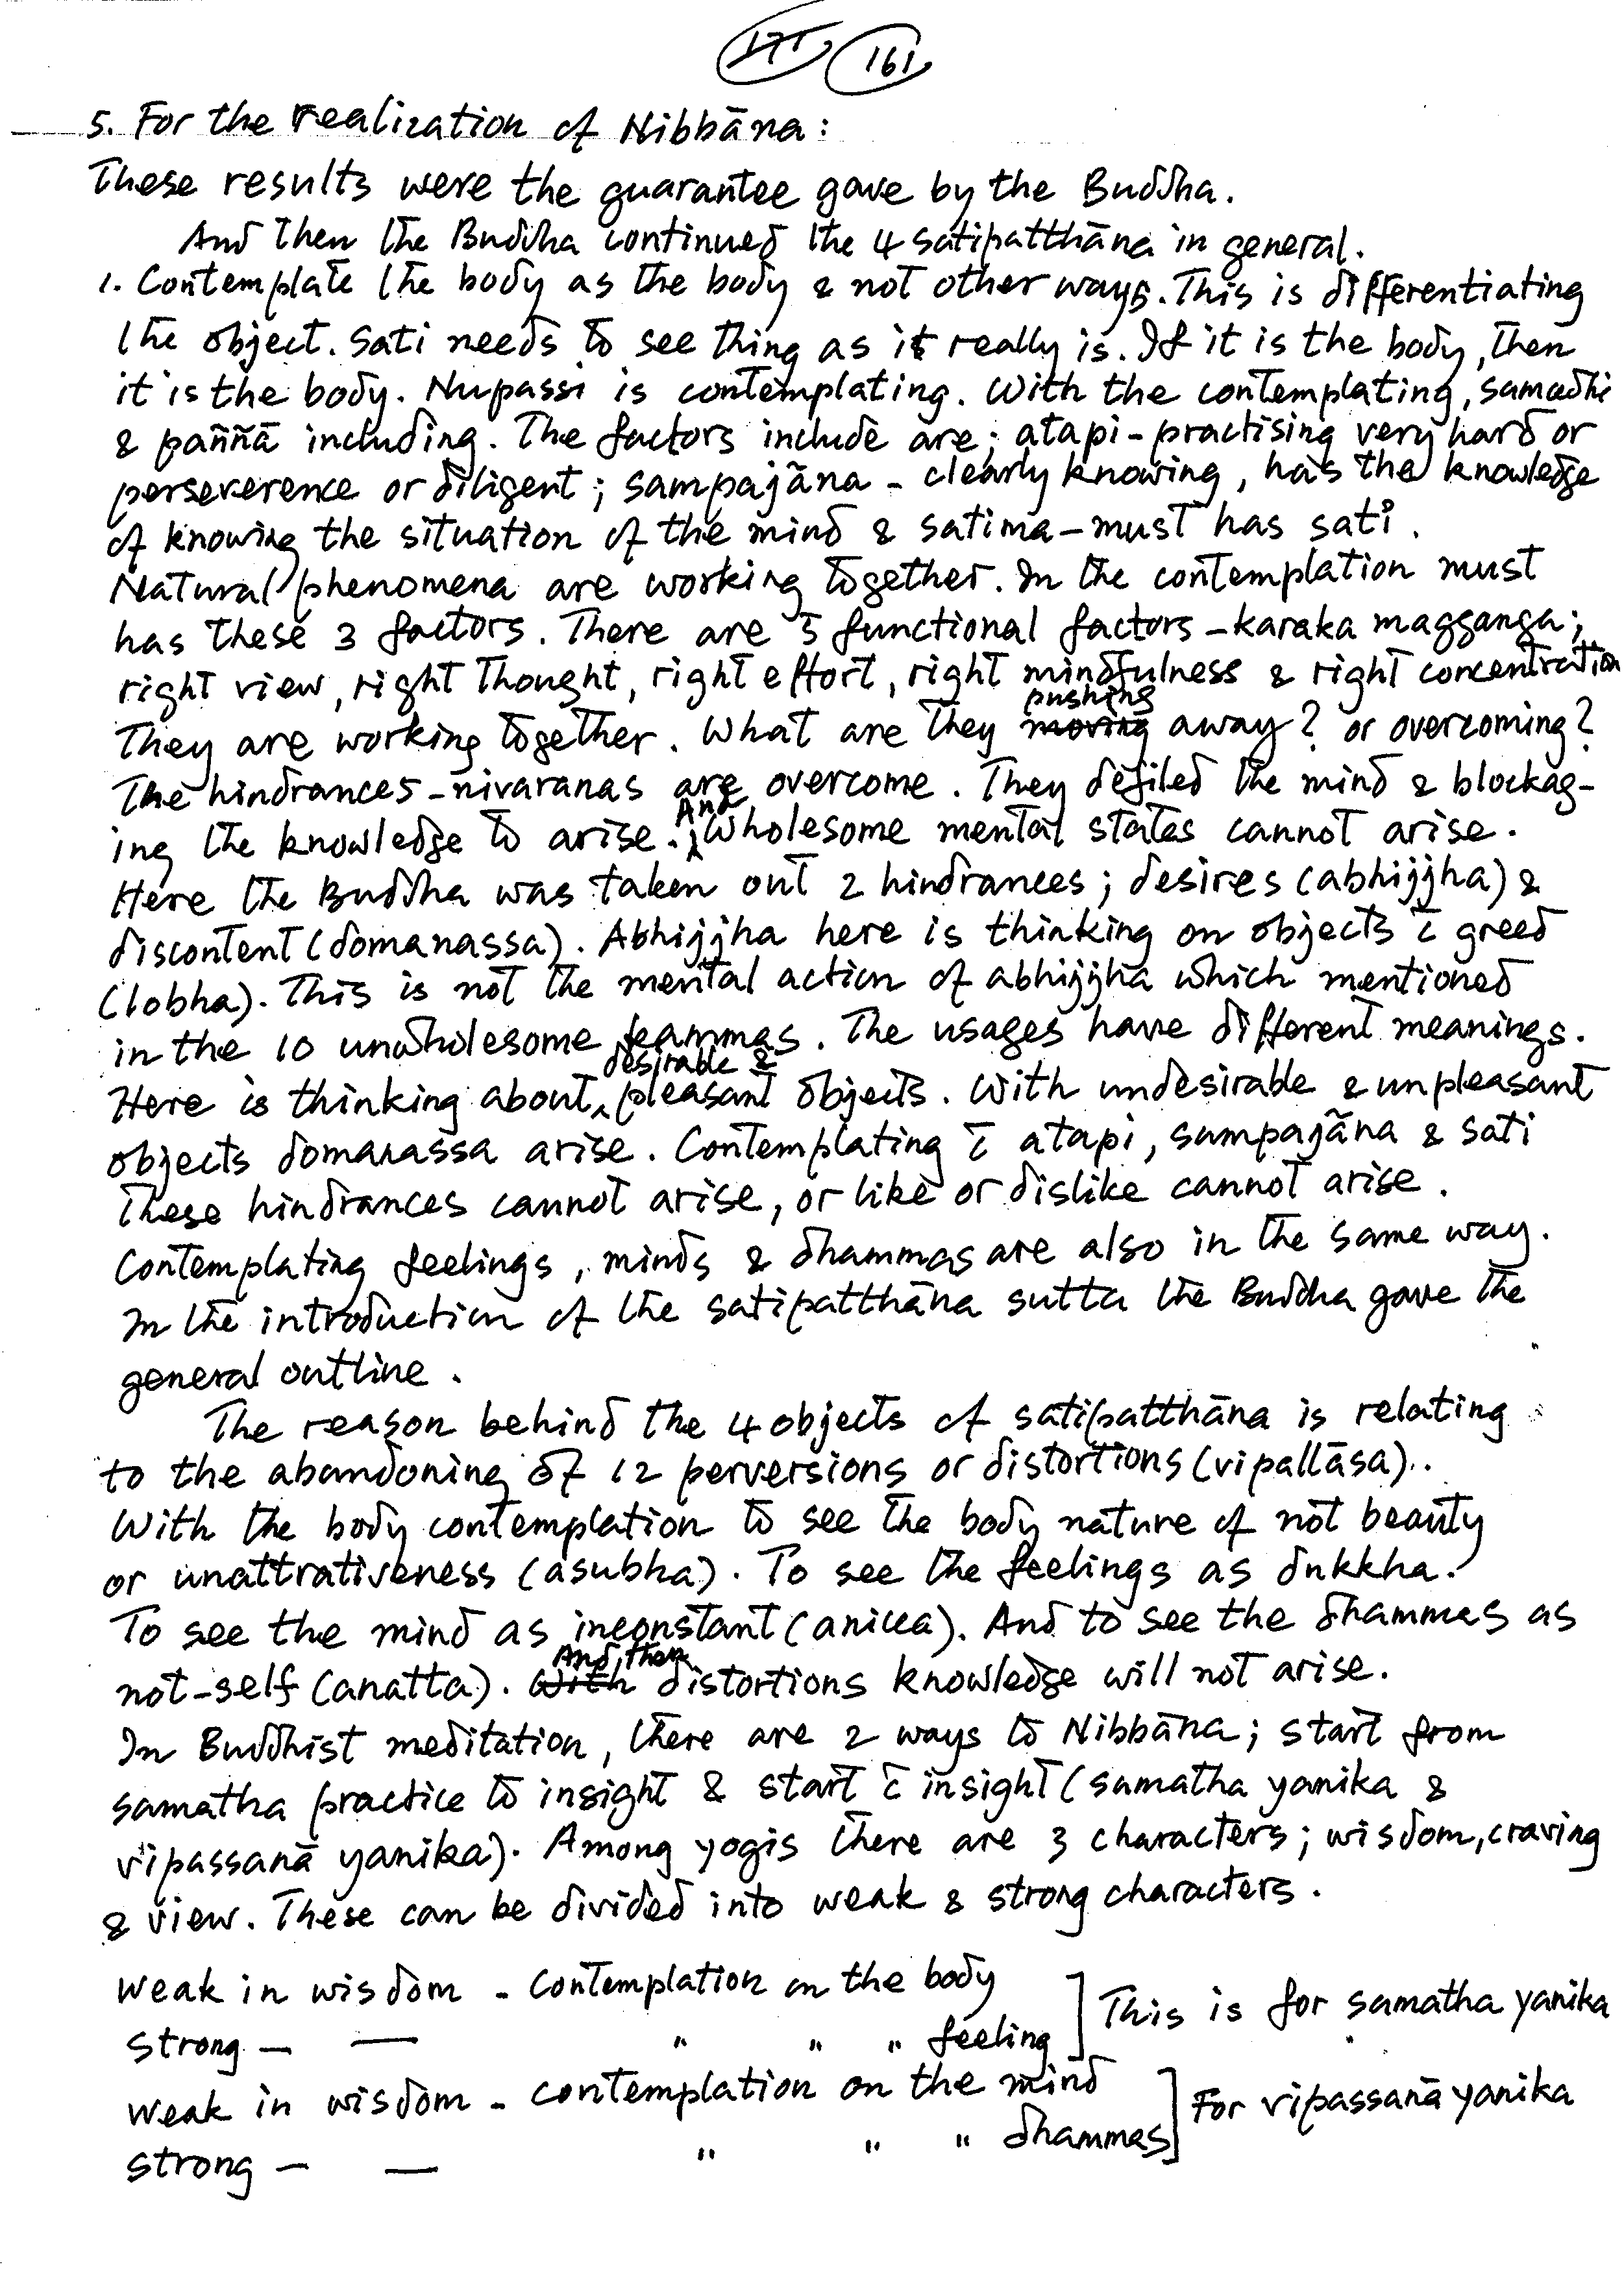 171 161
5. For the realization of Nibbāna:
These results were the guarantee gave by the Buddha.
And then the Buddha continued the 4 satipatthāna in general.
1. Contemplate the body as the body & not other ways. This is differentiating
the object. Sati needs to see thing as it really is. If it is the body, then
it is the body. Nupassi is contemplating. With the contemplating, samadhi
& paññā including. The factors include are; atapi-practising very hard or
perseverence or diligent; sampajāna - clearly knowing, has the knowledge
of knowing the situation of the mind & satima-must has sati.
Natural phenomena are working together. In the contemplation must
has these 3 factors. There are 5 functional factors -karaka magganga;
right view, right thought, right effort, right mindfulness & right concentration
They are working together. What are they moving pushing away? or overcoming?
The hindrances-nivaranas are overcome. They defiled the mind & blockag-
ing the knowledge to arise. And wholesome mental states cannot arise.
Here the Buddha was taken out 2 hindrances; desires (abhijjha) &
discontent (domanassa). Abhijjha here is thinking on objects c̄ greed
(lobha). This is not the mental action of abhijjha which mentioned
in the 10 unwholesome kammas. The usages have different meanings.
Here is thinking about desirable & pleasant objects. With undesirable & unpleasant
objects domanassa arise. Contemplating c̄ atapi, sampajāna & sati
these hindrances cannot arise, or like or dislike cannot arise.
Contemplating feelings, minds & dhammas are also in the same way.
In the introduction of the satipatthāna sutta the Buddha gave the
general outline.
The reason behind the 4 objects of satipatthāna is relating
to the abandoning of 12 perversions or distortions (vipallāsa)..
With the body contemplation to see the body nature of not beauty
or unattrativeness (asubha). To see the feelings as dukkha.
To see the mind as inconstant (anicca). And to see the dhammas as
not-self (anatta). With And then distortions knowledge will not arise.
In Buddhist meditation, there are 2 ways to Nibbāna; start from
samatha practice to insight & start c̄ insight (samatha yanika &
vipassanā yanika). Among yogis there are 3 characters; wisdom, craving
& view. These can be divided into weak & strong characters.
Weak in wisdom - Contemplation on the body ] This is for samatha yanika
Strong — — " " " feeling
Weak in wisdom - contemplation on the mind ] For vipassanā yanika
Strong — — " " " dhammas